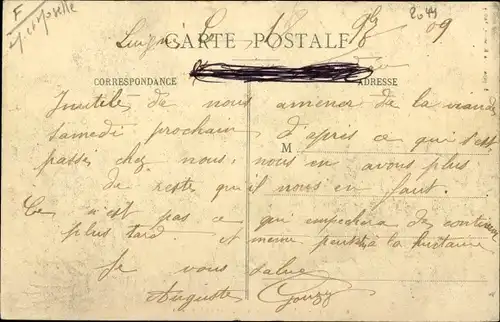 F
M et Moselle
2044
Le 18 9bre 09
CARTE POSTALE
CORRESPONDANCE
ADRESSE
Inutile de nous amener de la viande
samedi prochain d'apres ce qui s'est
M
passé chez nous, nous en avons plus
de reste qu'il nous en faut.
Ce n'est pas ce qui empechera de continuer
plus tard. et meme peut à la
Je vous salue
Auguste Gouzy